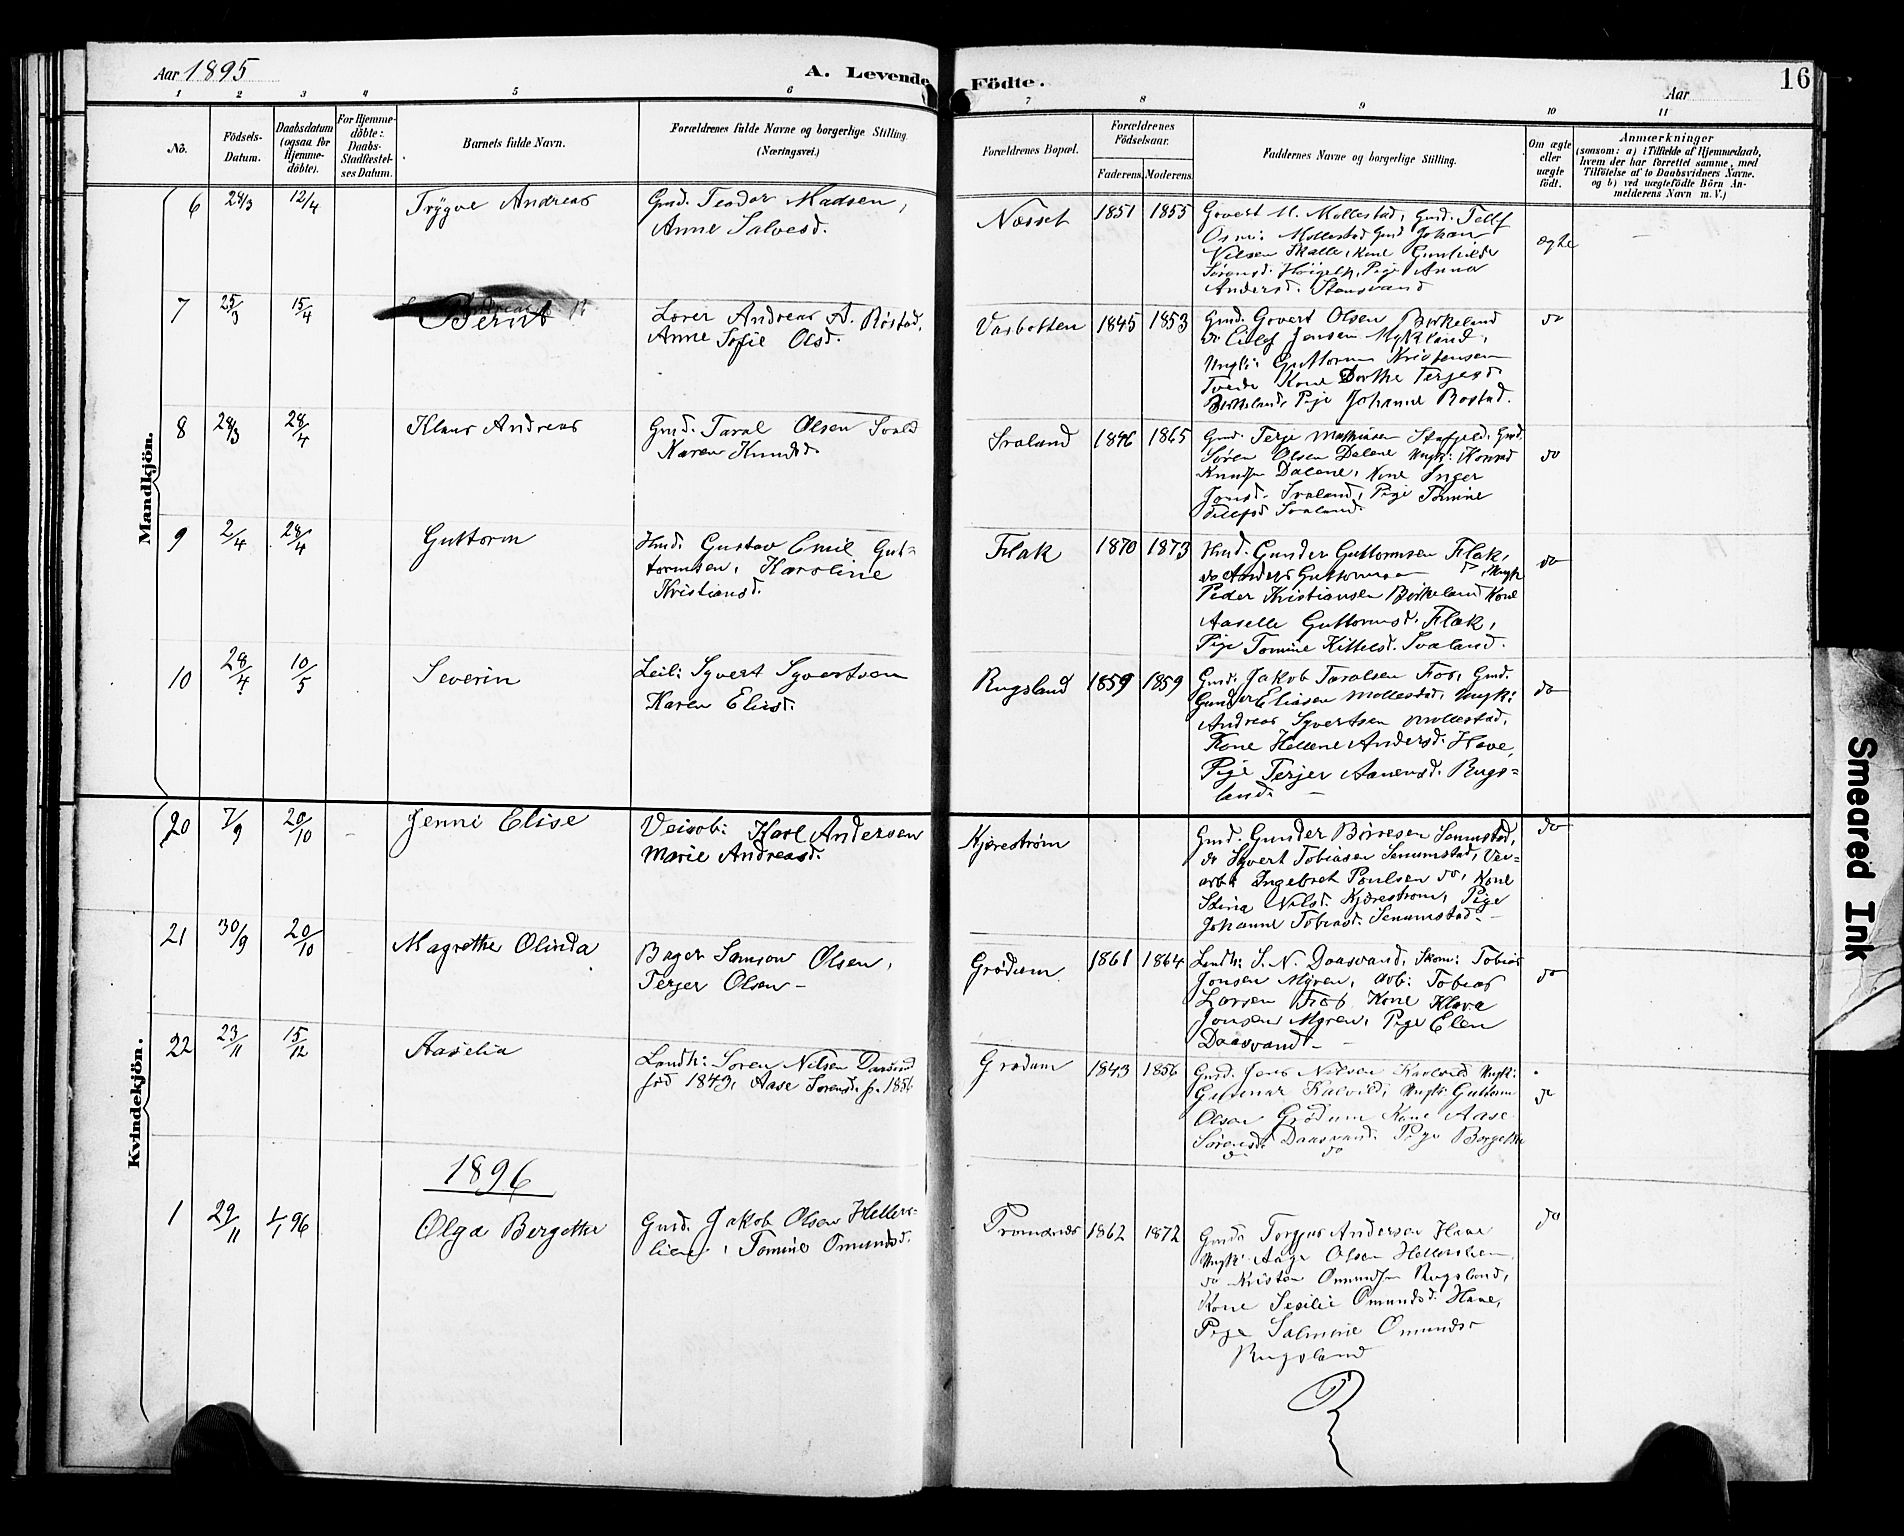 Aar 1895
A. Levende Födte.
16
Aar
1 2 3 4 5 6 7 8 9 10 11
No.
Födsels-Datum.
Daabsdatum (ogsaa for Hjemmedöbte).
For Hjemmedöbte: Daabs-Stadfæstelses Datum.
Barnets fulde Navn.
Forældrenes fulde Navne og borgerlige Stilling. (Næringsvei.)
Forældrenes Bopæl.
Forældrenes Födselsaar.
Faderens. Moderens.
Faddernes Navne og borgerlige Stilling.
Om ægte eller uægte födt.
Anmærkninger
(saasom: a) i Tilfælde af Hjemmedaab, hvem der har forrettet samme, med Tilföielse af to Daabsvidners Navne. og b) ved uægtefödte Börn Anmelderens Navn m. V.)
Mandkjön.
6 24/3 12/4 Trygve Andreas
Gmd. Teodor Madsen,
Anne Salvesd.
Næsset 1851 1855
Govert M. Mollestad, Gmd. Tellef
Mollestad Gmd Johan
Nilsen Skalle, Kone Gunhilde
Sørensd. Høigilt, Pige Anna
Andersd. Stensvand
ægte
7 25/3 15/4 Bernt
Lærer Andreas A. Røstad,
Anne Sofie Olsd.
Vasbotten 1845 1853
Gmd. Govert Olsen Birkeland
do Eilef Jensen Mykland,
Ungk: Guttorm Kristensen
Tvede Kone Dorthe Terjesd.
Birkeland, Pige Johanne Rostad.
do
8 24/3 28/4 Klaus Andreas
Gmd. Taral Olsen Svald
Karen Knudsd.
Svaland 1846 1865
Gmd. Terje Mathiasen Stafjeld, Gmd.
Søren Olsen Dalene Ungk: Konrad
Knudsn Dalene, Kone Inger
Jonsd. Svaland, Pige Tomine
Tellefsd Svaland
do
9 2/4 28/4 Guttorm
Hmd. Gustav Emil Gut-
tormsen, Karoline
Kristiansd.
Flak 1870 1873
Hmd. Gunder Guttormsen Flak,
do Anders Guttormsen do, Ungk
Peder Kristiansen Birkeland Kone
Aaselle Guttormsd. Flak,
Pige Tomine Kittelsd. Svaland.
do
10 28/4 10/5 Severin
Leil: Syvert Syvertsen
Karen Eliesd.
Rugsland 1859 1859
Gmd. Jakob Taralsen Fos, Gmd.
Gunder Eliasen Mollestad, Ungk:
Andreas Syvertsen Mollestad,
Kone Hellene Andersd. Have,
Pige Terjer Aanensd. Rugs=
land. –
do
Kvindekjön.
20 7/9 20/10 Jenni Elise
Veiarb: Karl Andersen
Marie Andreasd.
Kjærestrøm
Gmd. Gunder Børresen Senumstad,
do Syvert Tobiasen Senumstad, Vei-
arb: Ingebret Poulsen do, Kone
Stina Nilsd. Kjærestrøm, Pige
Johanne Tobiasd. Senumstad. –
do
21 30/9 20/10 Magrethe Olinda
Bager Samson Olsen,
Terjer Olsen –
Grødum 1861 1864
Landh: S. N. Daasvand, Skom: Tobias
Jonsen Myren, Arb: Tobias
Larsen Fos Kone Klara
Jonsen Myren, Pige Elen
Daasvand –
do
22 23/11 15/12 Aaselia
Landh: Søren Nilsen Daasvand
fød 1843, Aase Sørensd. f. 1856
Grødum 1843 1856
Gmd. Jens Nilsen Kalvild Ungk:
Gunnar Kalvild, Ungk: Guttorm
Olsen Grødum Kone Aase
Sørensd. Daasvand. Pige Borgethe
do do
do
1896
1 29/11 1/1 96 Olga Bergethe
Gmd. Jakob Olsen Hellers-
lien, Tomine Omundsd.
Tromsnes 1862 1872
Gmd. Torjus Andersen Have
Ungk. Aage Olsen Hellerslien
do Kristen Omundsn Rugsland,
Kone Sesilie Omundsd. Have,
Pige Salmine Omundsd
Rugsland
do
Smeared Ink